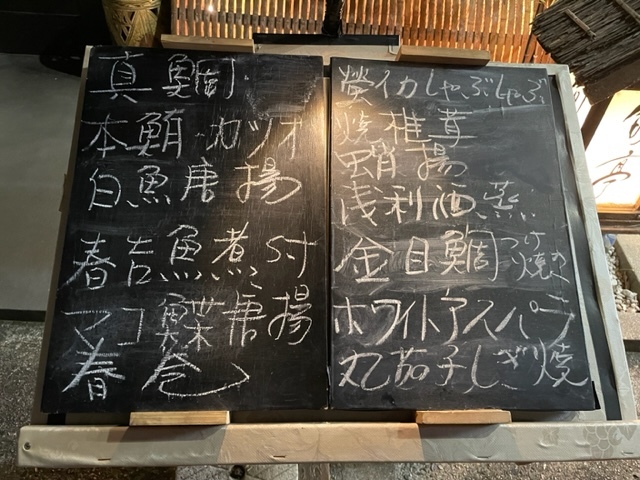 真鯛
本鮪・カツオ
白魚唐揚
春告魚煮付
マコ鰈唐揚
春巻
螢イカしゃぶしゃぶ
焼椎茸
蛸揚
浅利酒蒸
金目鯛つけ焼
ホワイトアスパラ
丸茄子しぎ焼
亭